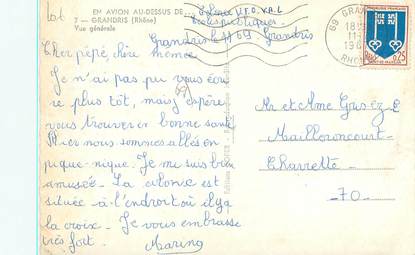 lot
EN AVION AU-DESSUS DE...
7 — GRANDRIS (Rhône)
Vue générale
Colonie U.F.O.V.A.L
Grandris 69 Grandris
Cher pépé, chère mémée
Je n'ai pas pu vous écri
re plus tôt, mais j'espère
vous trouver en bonne santé
Hier nous sommes allés en
pique-nique. Je me suis bien
amusée. La colonie est
située à l'endroit où il y a
la croix. Je vous embrasse
très fort.
69 GRAN
18
11-
196
RHO
0,25
Mr et Mme
Mailloroncourt
Charrette
- 70 -